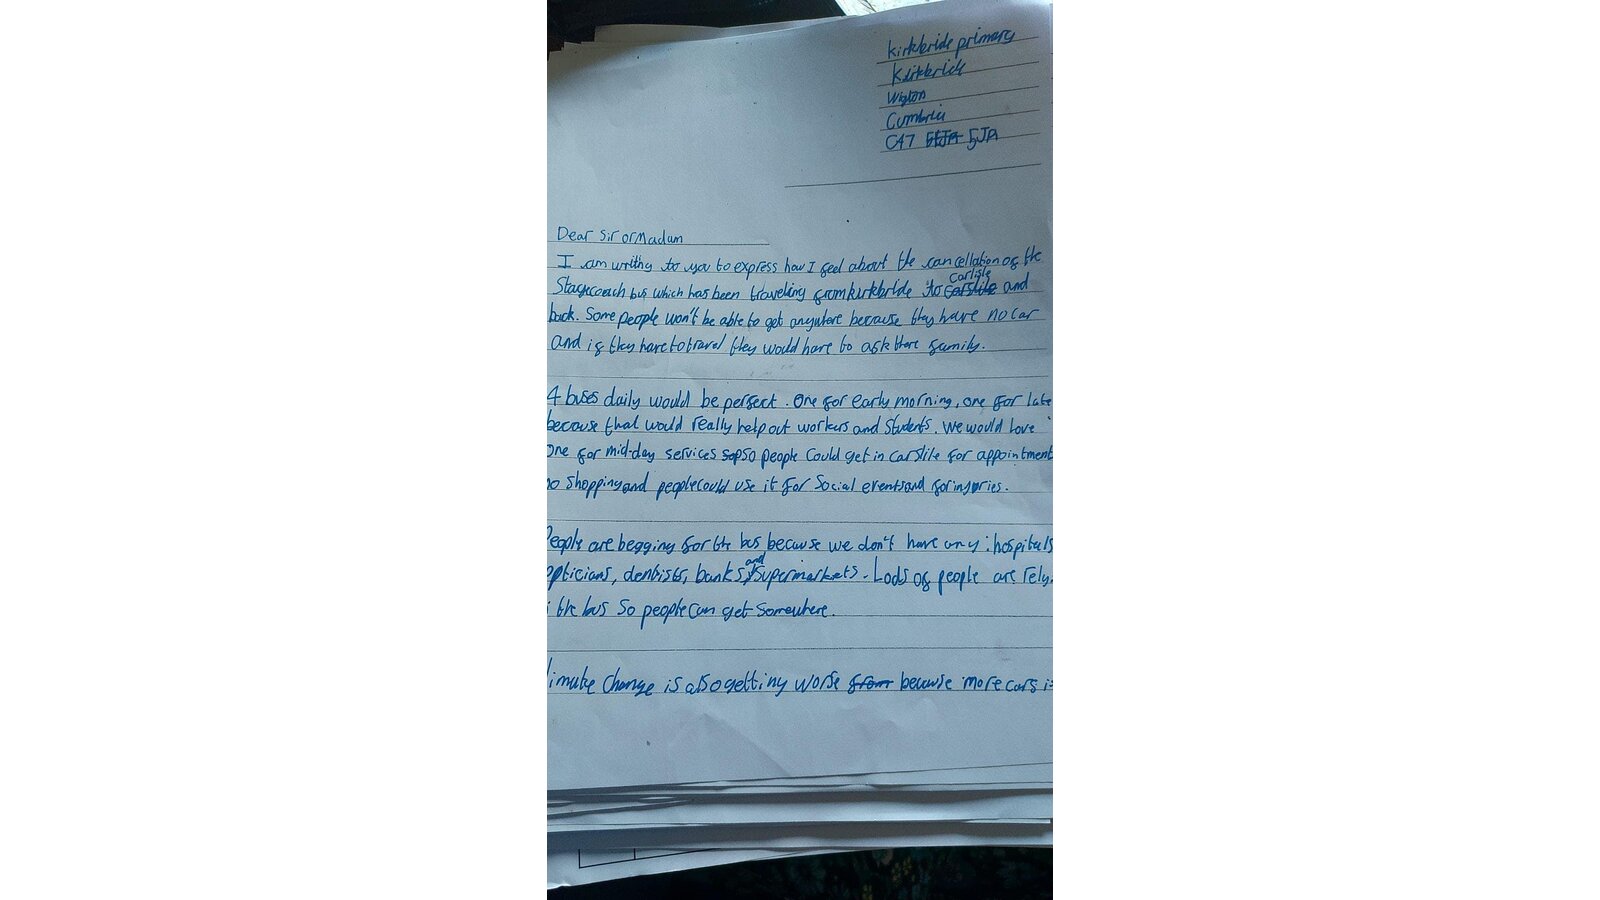 Kirkbride primary
Kirkbride
Wigton
Cumbria
CA7 5JA
Dear Sir or Madam
I am writing to you to express how I feel about the cancellation of the
Stagecoach bus which has been traveling from kirkbride to Carlisle and
back. Some people won't be able to get anywhere because they have no car
and if they have to travel they would have to ask there family.
4 buses daily would be perfect. One for early morning, one for late
because that would really help out workers and students. We would love
One for mid-day services so people could get in carslile for appointment
shopping and people could use it for social events and for injuries.
People are begging for the bus because we don't have any: hospitals
opticians, dentists, banks and supermarkets. Lods of people are rely
the bus so people can get somewhere.
limate change is also getting worse because more cars is